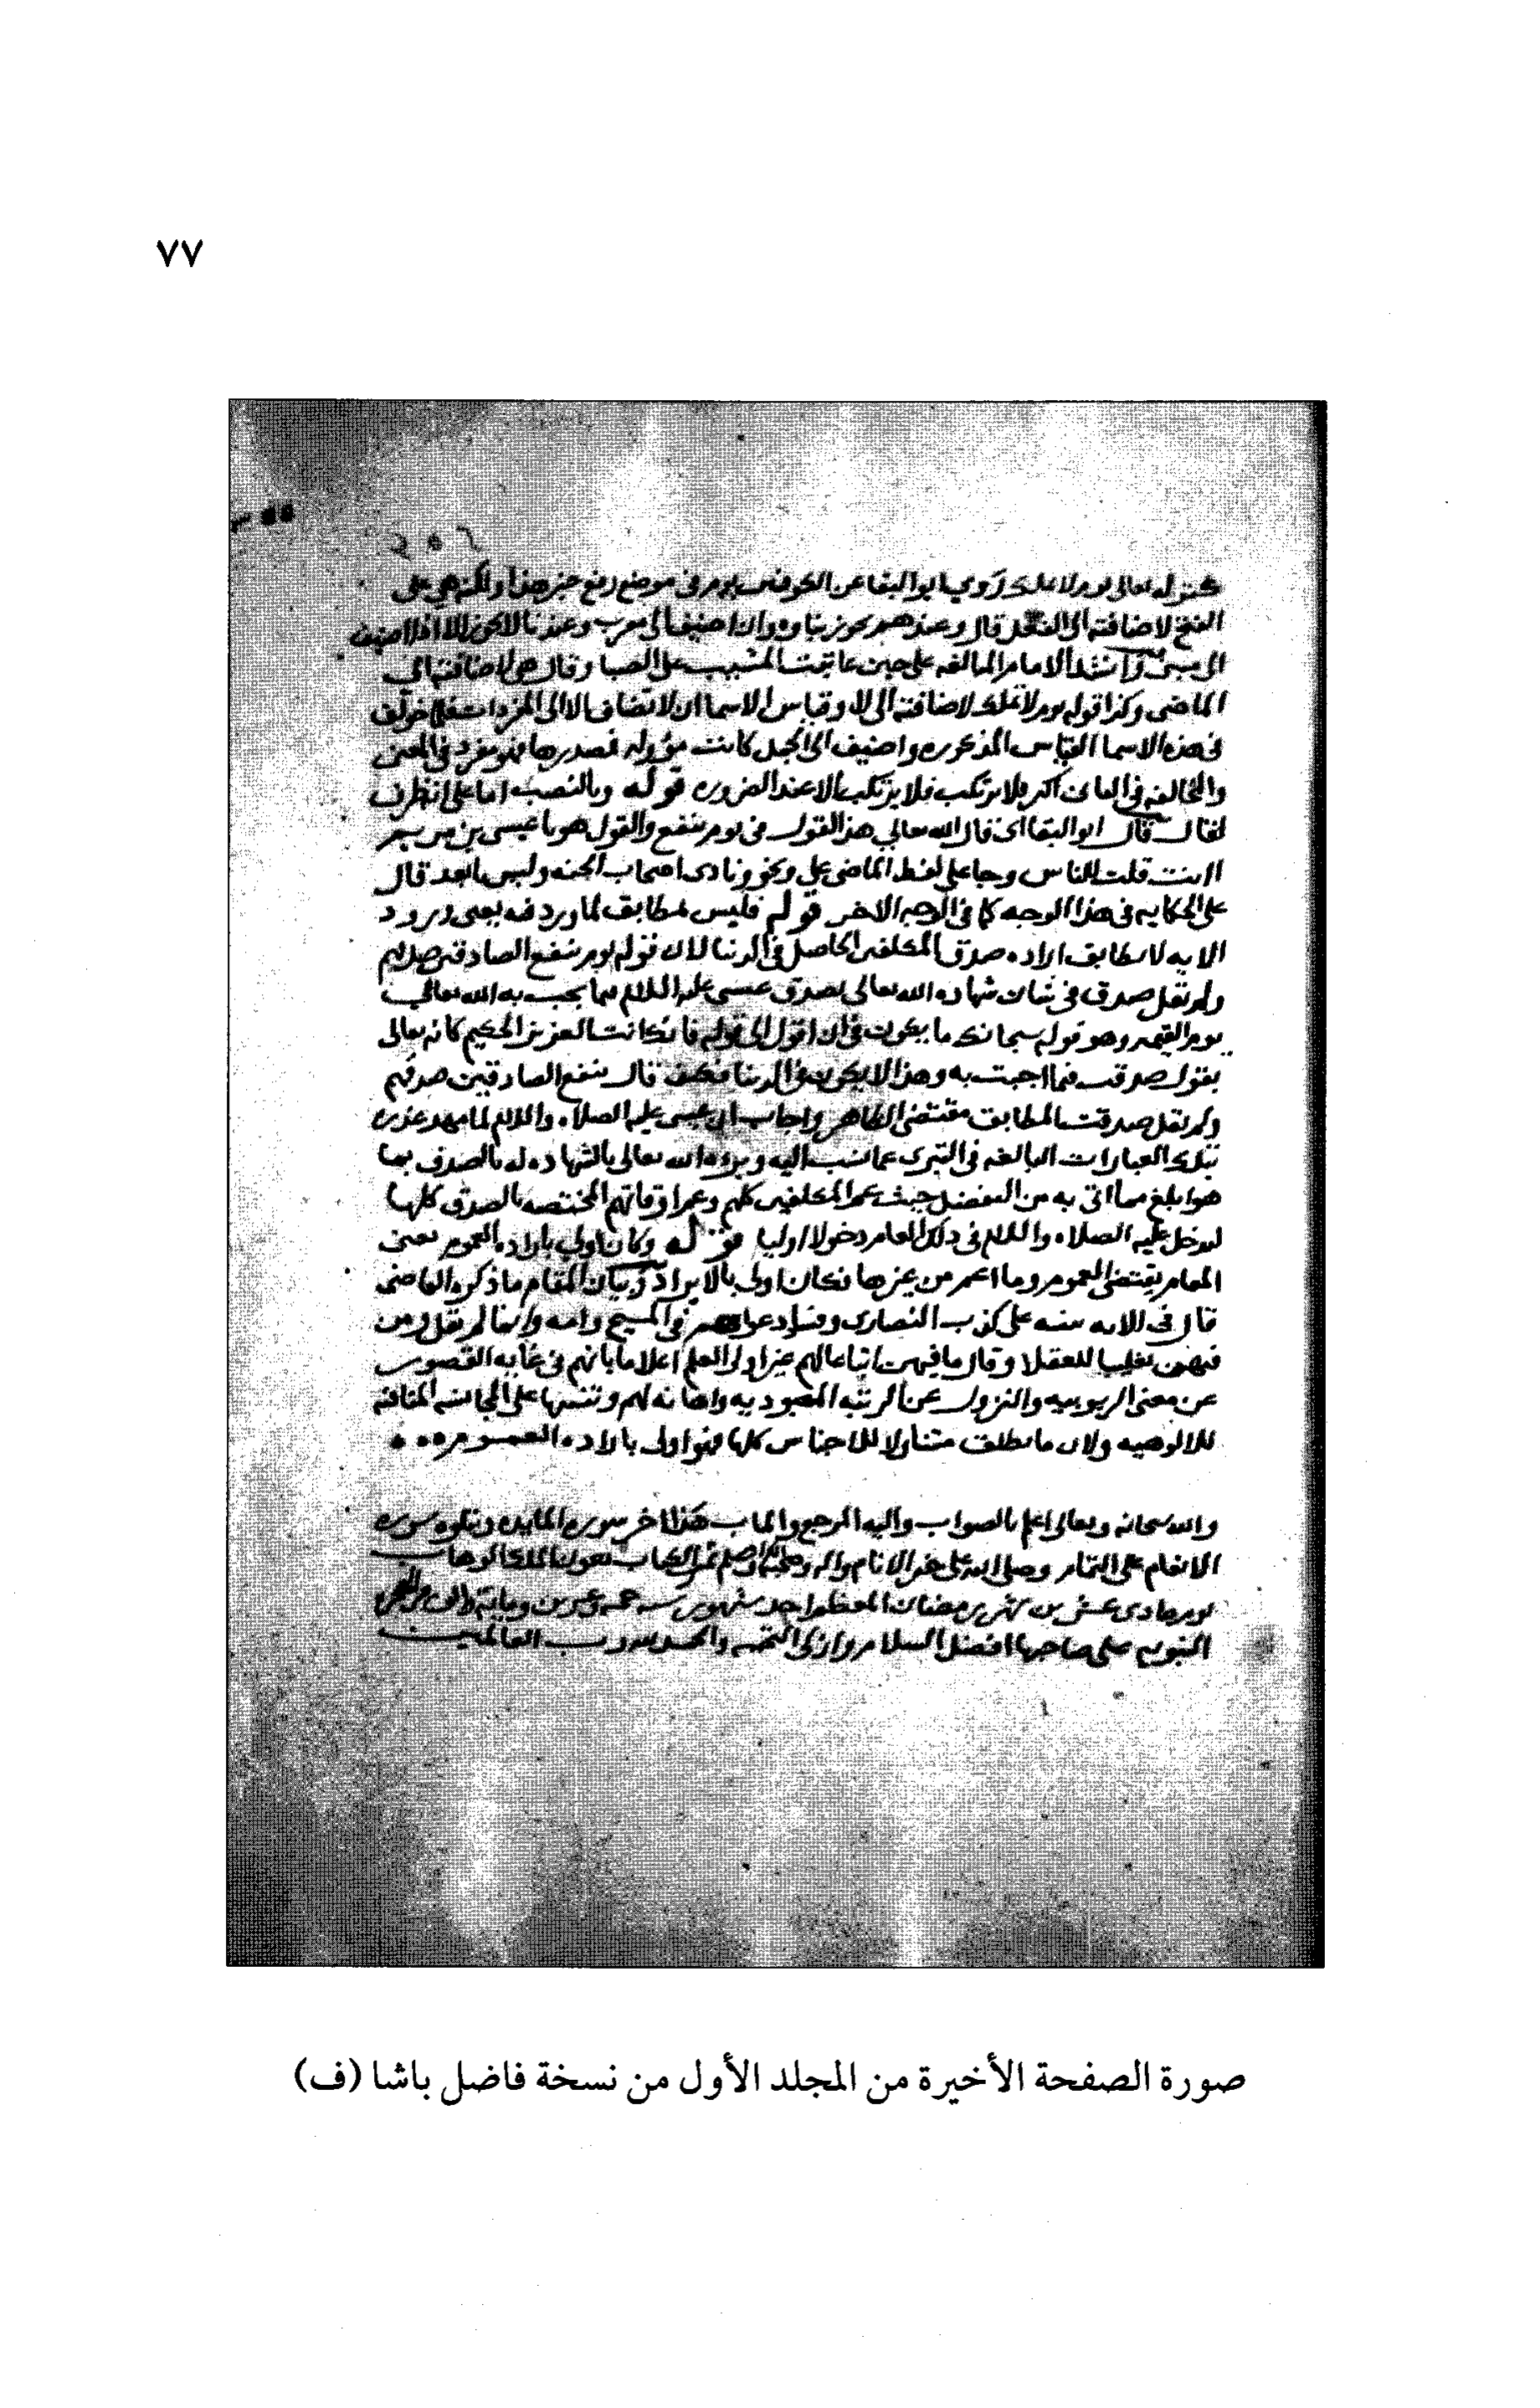 ٧٧
كقوله تعالى يوم لا تملك روي ابو البقا عن الكوفيين يوم في موضع رفع خبر هذا ولكنه بني على
الفتح لاضافته الى الفعل قال وعندهم يجوز بناوه وان اضيف الى معرب وعندنا لا يجوز الا اذا اضيف
الى مبني وانشد الامام المالقه على حين عاتبت المشيب على الصبا وقال بني لاضافته الى
الماضي وكذا قوله يوم لا تملك لاضافته الى لا وقياس الاسما ان لا تضاف الا الى المفردات
في هذه الاسما القياس المذكوره واضيف الى الجمل كانت مؤوله فهو مفرد في المعنى
فلا يرتكب الا عند الضروره قوله وبالنصب اما على انه ظرف
لقال قال ابو البقا اي قال الله تعالى هذا القول في يوم ينفع والقول هو يا عيسى بن مريم
اانت قلت للناس وجا على لفظ الماضي على ونحو ونادى اصحاب الجنه وليس ما بعد قال
على الحكايه في هذا الوجه كما في الوجه الاخر قوله فليس بمطابق لما ورد فيه يعني ورود
الايه لا يطابق اراده صدق المكلفين الحاصل في الدنيا لان قوله يوم ينفع الصادقين صدقهم
ولم يقل صدق في شان شهاده الله تعالى بصدق عيسى عليه السلام فيما يجيب به الله تعالى
يوم القيمه وهو قوله سبحانك ما يكون لي ان اقول الى قوله فانك انت العزيز الحكيم كانه تعالى
يقول صدقت فيما اجبت به وهذا لا يكون في الدنيا فكيف قال ينفع الصادقين صدقهم
ولم يقل صدقت المطابق مقتضى الظاهر واجاب ان عيسى عليه الصلاه والسلام لما مهد عذره
بتلك العبارات البالغه في التبري عما نسب اليه وبروه الله تعالى بالشهاده له بالصدق بما
هو ابلغ مما اتى به من التفضل حيث عم المكلفين كلهم وعم اوقاتهم المختصه بالصدق كلها
ليدخل عليه الصلاه والسلام في ذلك العام دخولا اوليا قوله وكان اولى باراده العموم يعني
المقام يقتضي العموم وما اعم من غيرها فكان اولى بالايراد وبيان المقام ما ذكره القاضي
قال في الايه تنبيه على كذب النصارى وفساد دعواهم في المسيح وامه وانما لم يقل ومن
فيهن تغليبا للعقلا وقال ما فيهن اتباعا لهم غير اولى العلم اعلاما بانهم في غايه القصور
عن معنى الربوبيه والنزول عن الرتبه المعبوديه واهانه لهم وتنبيها على المجانسه المنافيه
للالوهيه ولان ما يطلق متناولا للاجناس كلها فهو اولى باراده العموم
والله سبحانه وتعالى اعلم بالصواب واليه المرجع والماب هذا اخر سوره المايده ويتلوه سوره
الانعام على التمام وصلى الله على خير الانام واله وصحبه وسلم تم الكتاب بعون الملك الوهاب
يوم حادى عشر من شهر رمضان المعظم احد شهور سنه خمسه وعشرين وميه والف من الهجره
النبويه على صاحبها افضل السلام وازكى التحيه والحمد لله رب العالمين
صورة الصفحة الأخيرة من المجلد الأول من نسخة فاضل باشا (ف)